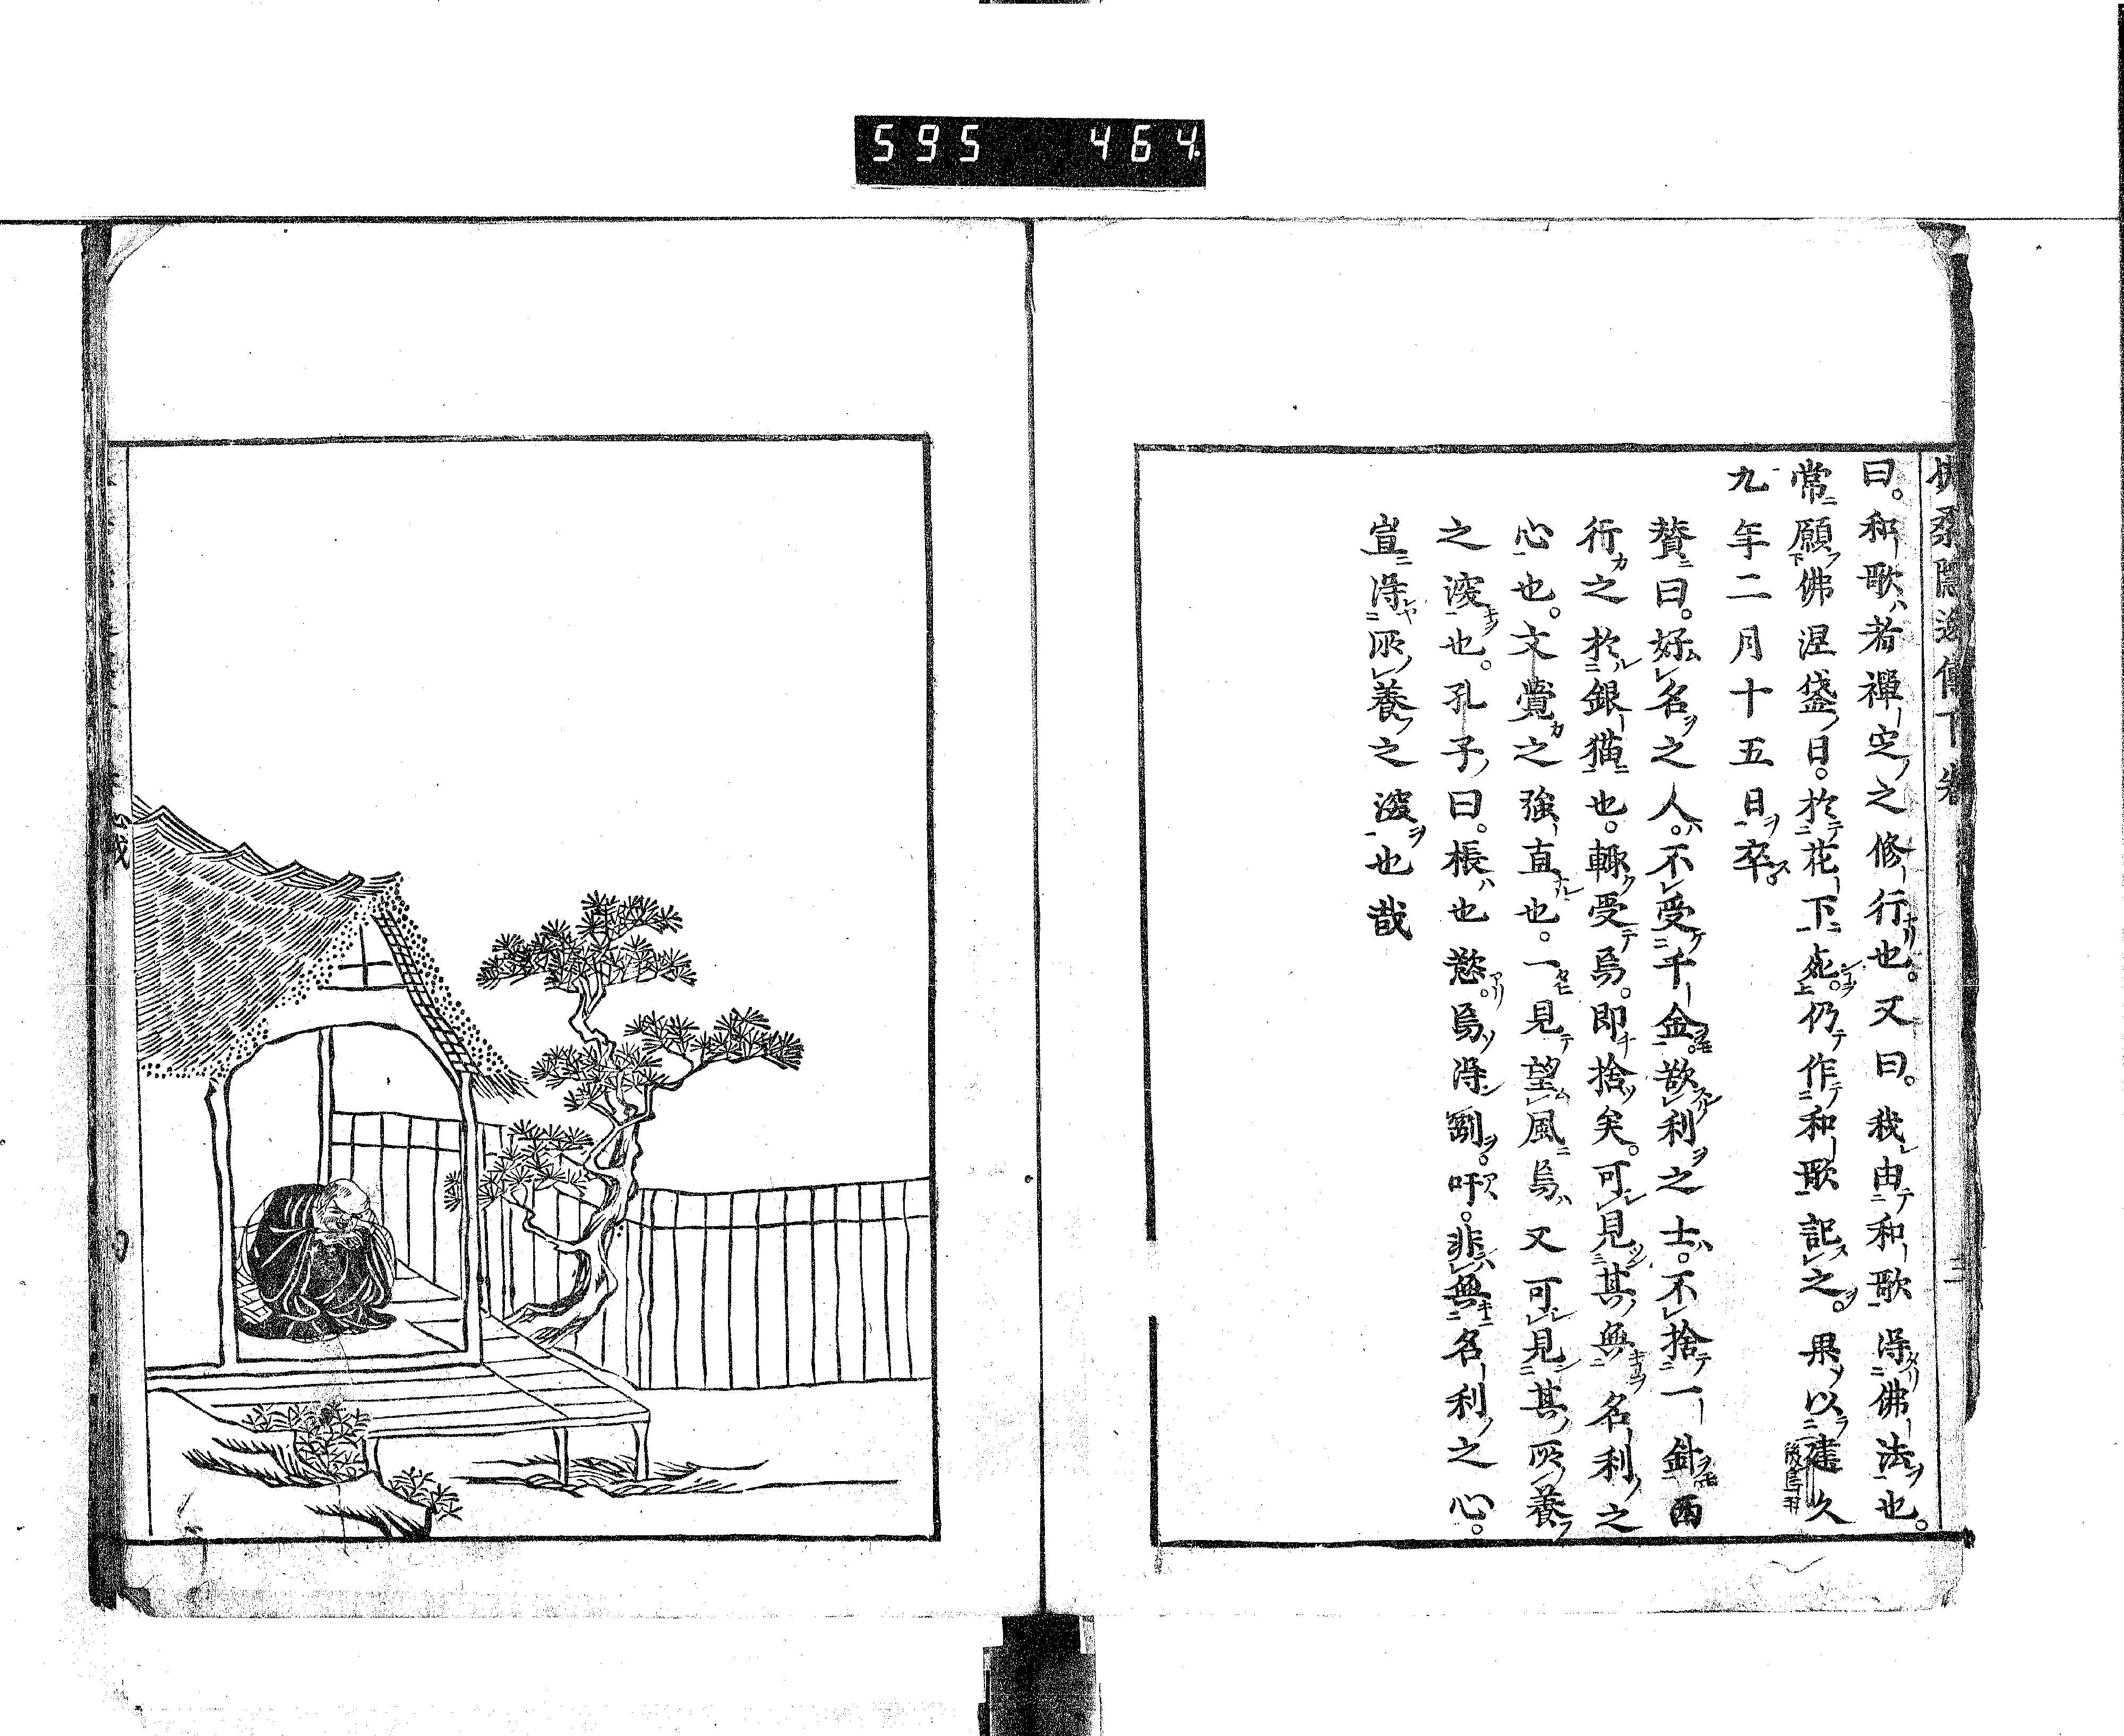 595 464
扶桑隱逸傳下卷
曰。和歌者禪定之修行也。又曰。我由和歌得佛法也。
常願佛涅槃日。於花下死。仍作和歌記之。果以建久
後鳥羽
九年二月十五日卒。
贊曰。好名之人。不受千金。欲利之士。不捨一針。西
行之於銀猫也。輙受焉。即捨矣。可見其無名利之
心也。文覺之強直也。一見望風焉。又可見其所養
之深也。孔子曰。棖也慾。焉得剛。吁。非無名利之心。
豈得所養之深也哉